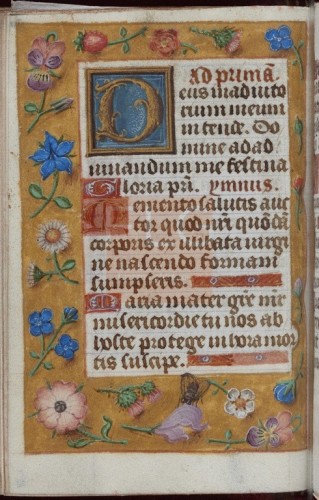 Ad primā.
Deus in adiuto
rium meum
intende. Do
mine ad ad
iuuandum me festina
Gloria pr̄i. ymnus.
Memento salutis auc
tor quod nr̄i quōdā
corporis ex illibata uirgi
ne nascendo formam
sumpseris.
Maria mater gr̄e m̄r
misericordie tu nos ab
hoste protege in hora mor
tis suscipe.